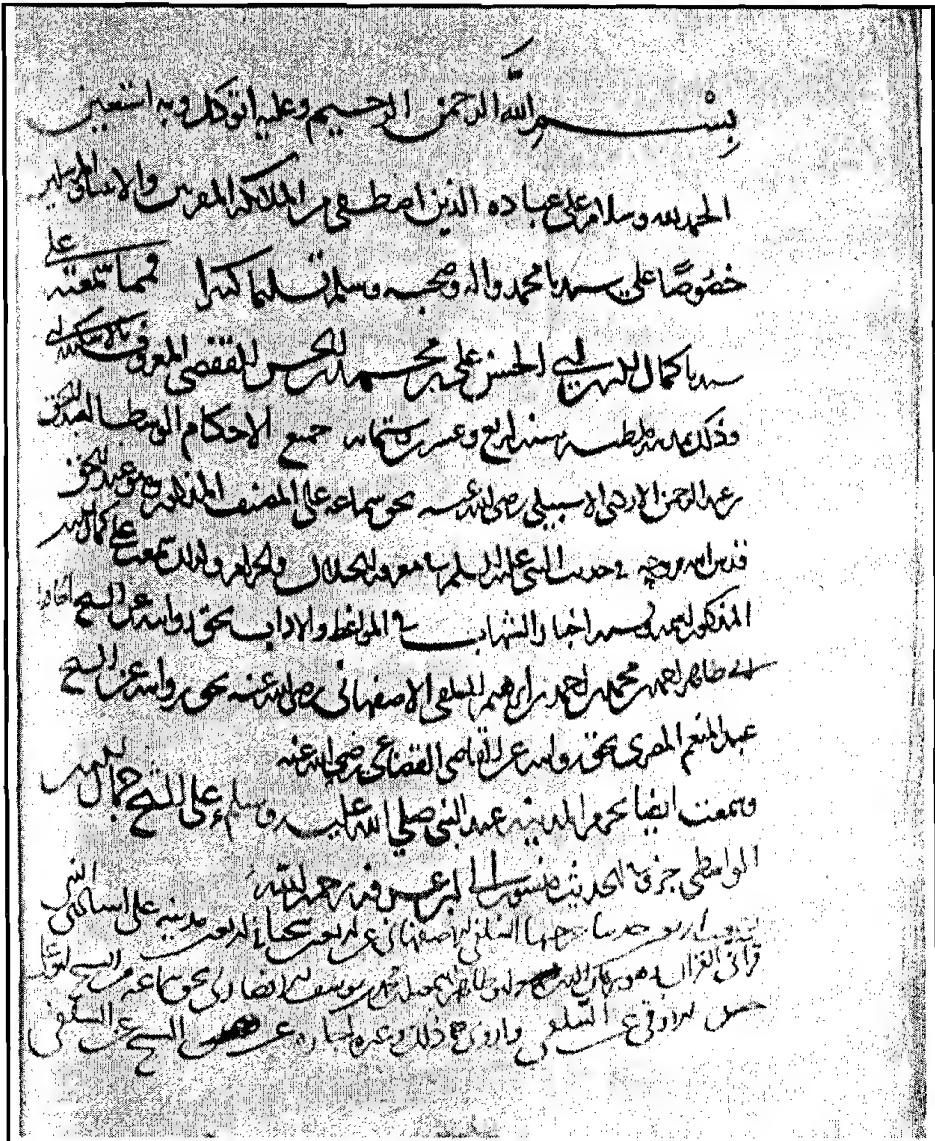 بِسْمِ اللّٰه الرحمن الرحيم وعليه اتوكل وبه استعين
الحمد لله وسلام على عباده الذين اصطفى من الملائكة المقربين والانبياء والمرسلين
خصُوصًا على سيدنا محمد واله وصحبه وسلم تسليما كثيرا فمما سمعته على
سيدنا كمال الدين ابي الحسن علي بن محمد بن الحسن المعروف
وذلك بمدينة سنة اربع وعشرين وستمايه جميع الاحكام الوسطى لعبد الحق
بن عبد الرحمن الازدي الاشبيلي رضي الله عنه بحق سماعه على المصنف المذكور عبد الحق
قدس الله روحه في حديث النبي عليه السلم في معرفة الحلال والحرام وكذلك سمعت على كمال الدين
المذكور اخبار الشهاب في المواعظ والاداب بحق روايته عن الشيخ الحافظ
ابي طاهر احمد بن محمد بن احمد بن ابرهيم السلفي الاصفهاني رضي الله عنه بحق روايته عن الشيخ
عبد المنعم المصري بحق روايته عن القاضي القضاعي رضي الله عنه
وسمعت ايضا بحرم المدينة عند النبي صلى الله عليه وسلم على الشيخ جمال الدين
الواسطي جزء في الحديث رحمه الله
اربعين حديثا خرجها السلفي الاصفهاني عن اربعين شيخا في اربعين مدينة على
قرأتي القران يوسف الانصاري بحق سماعه من
عن السلفي واروي ذلك وغيره الشيخ عن السلفي